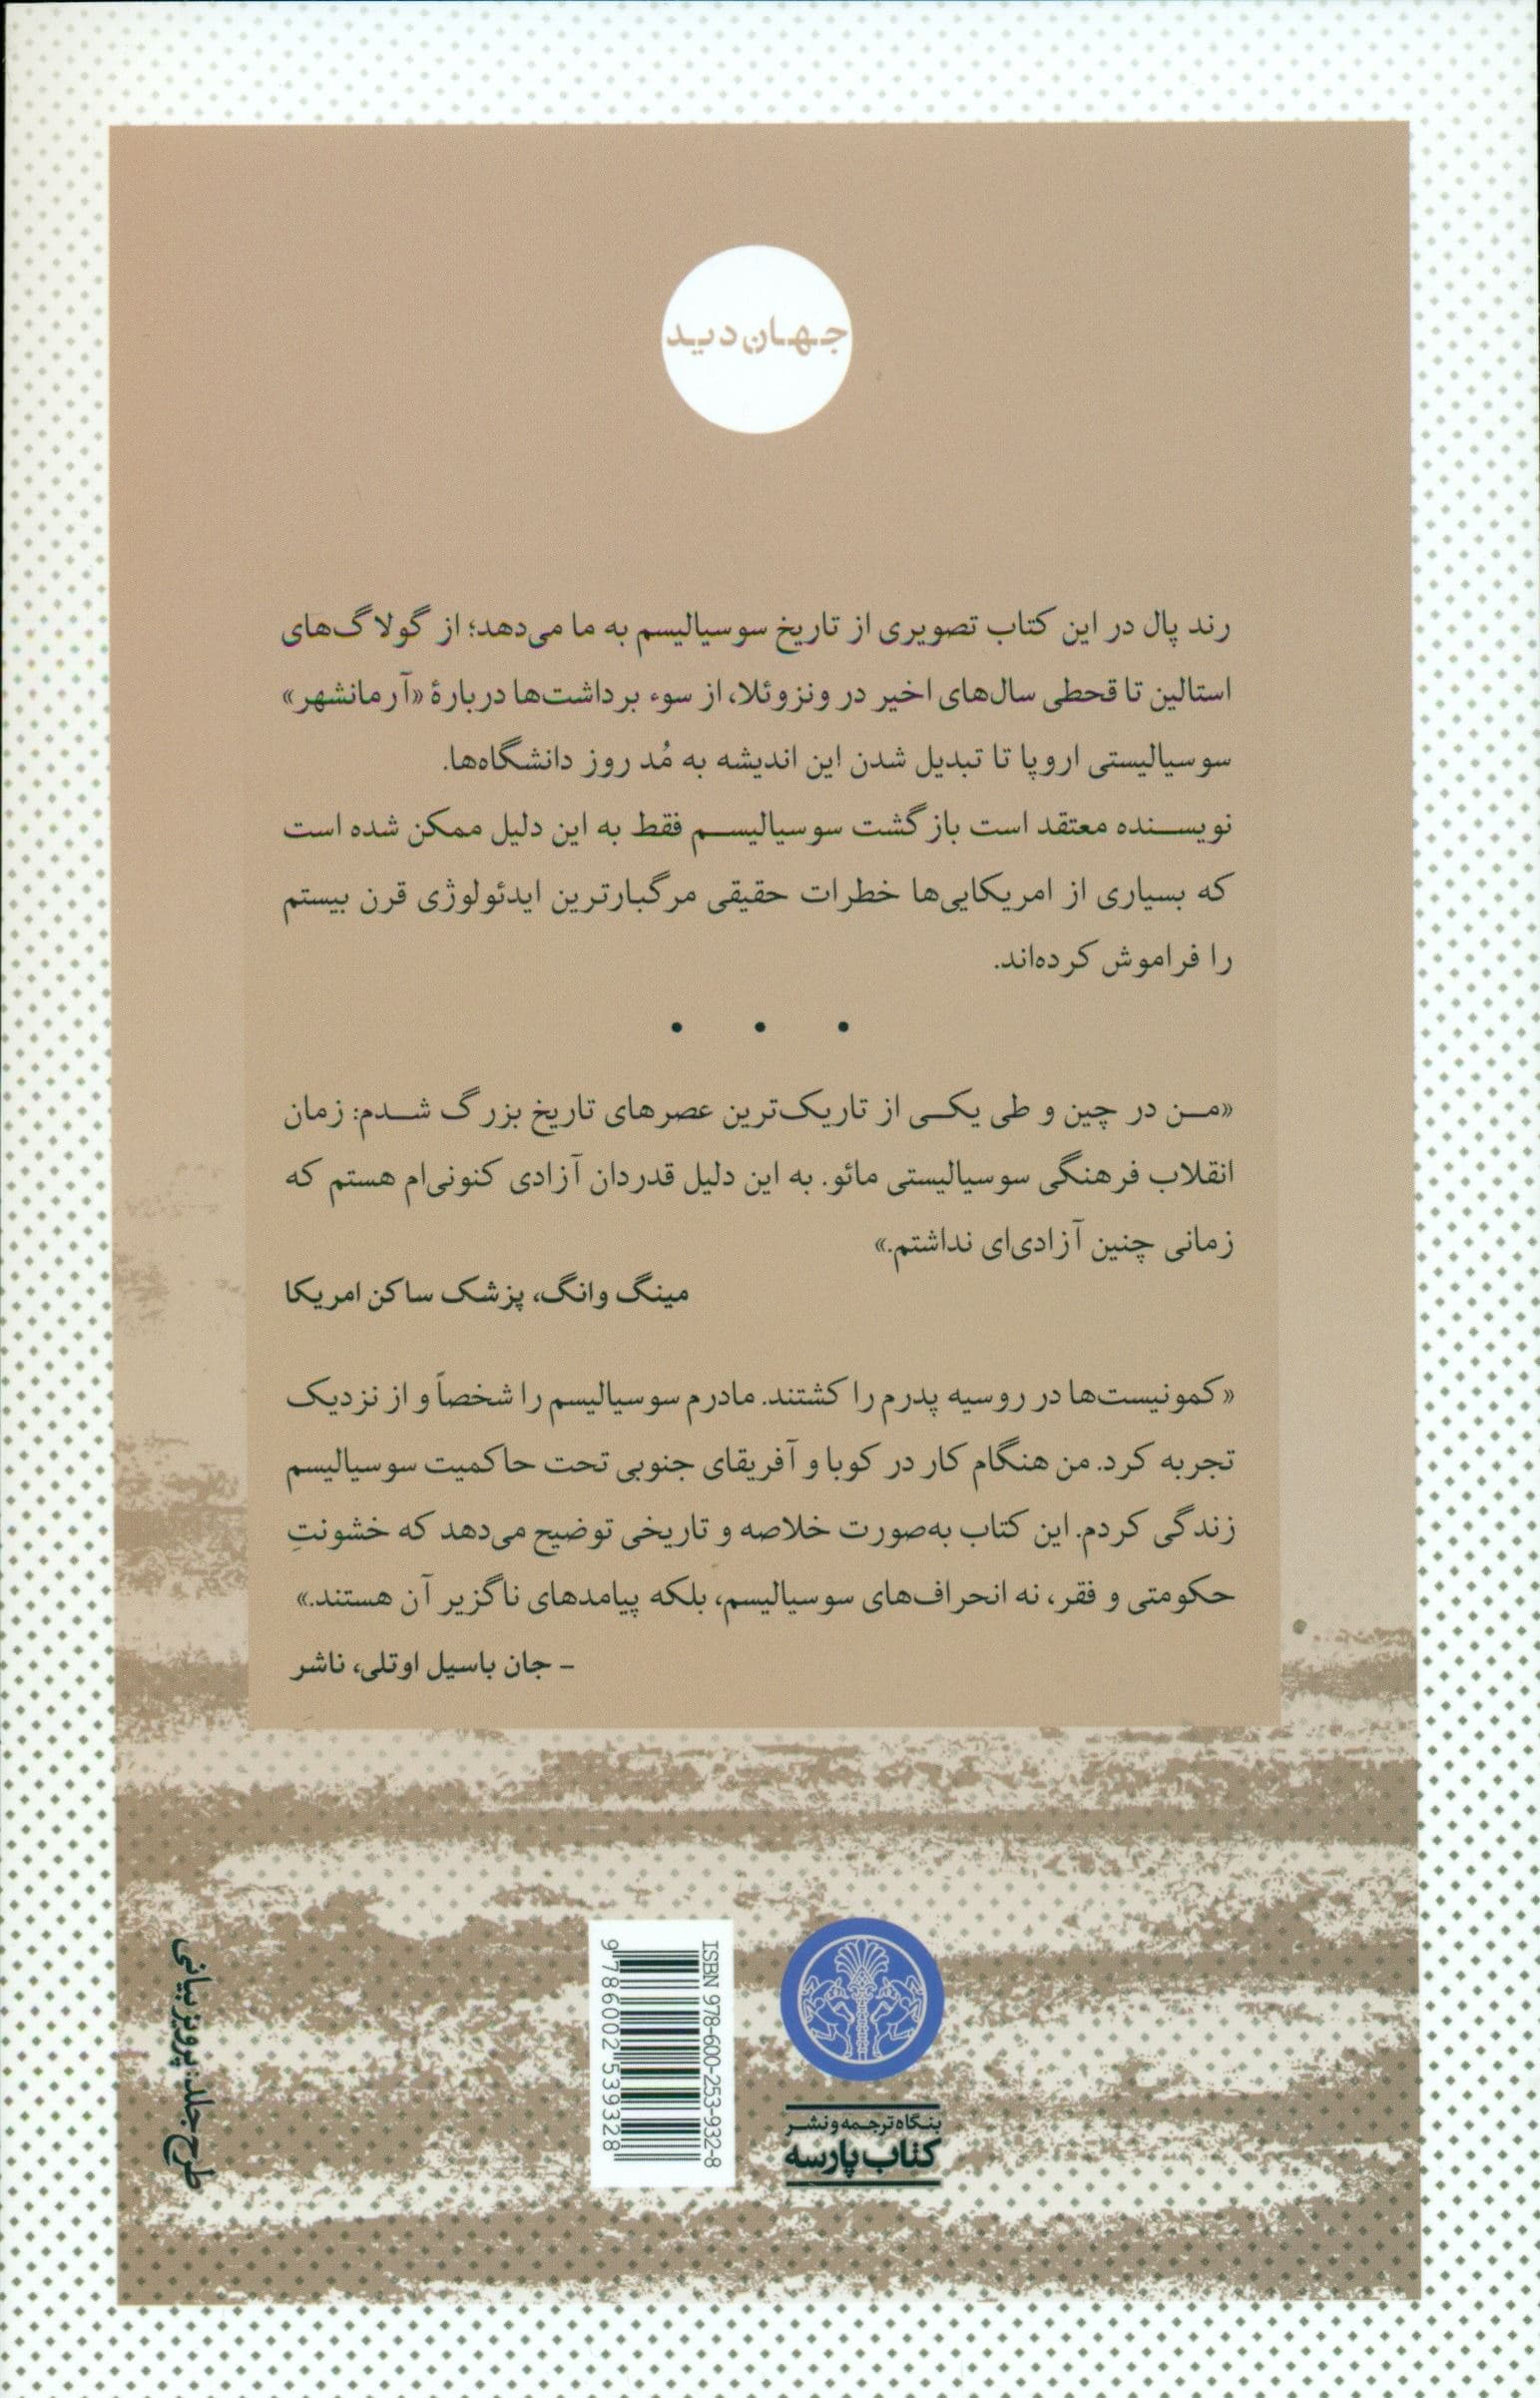 جهان دید
رند پال در این کتاب تصویری از تاریخ سوسیالیسم به ما می‌دهد؛ از گولاگ‌های
استالین تا قحطی سال‌های اخیر در ونزوئلا، از سوء برداشت‌ها دربارهٔ «آرمانشهر»
سوسیالیستی اروپا تا تبدیل شدن این اندیشه به مُد روز دانشگاه‌ها.
نویسنده معتقد است بازگشت سوسیالیسم فقط به این دلیل ممکن شده است
که بسیاری از امریکایی‌ها خطرات حقیقی مرگبارترین ایدئولوژی قرن بیستم
را فراموش کرده‌اند.
• • •
«من در چین و طی یکی از تاریک‌ترین عصرهای تاریخ بزرگ شدم: زمان
انقلاب فرهنگی سوسیالیستی مائو. به این دلیل قدردان آزادی کنونی‌ام هستم که
زمانی چنین آزادی‌ای نداشتم.»
مینگ وانگ، پزشک ساکن امریکا
«کمونیست‌ها در روسیه پدرم را کشتند. مادرم سوسیالیسم را شخصاً و از نزدیک
تجربه کرد. من هنگام کار در کوبا و آفریقای جنوبی تحت حاکمیت سوسیالیسم
زندگی کردم. این کتاب به‌صورت خلاصه و تاریخی توضیح می‌دهد که خشونتِ
حکومتی و فقر، نه انحراف‌های سوسیالیسم، بلکه پیامدهای ناگزیر آن هستند.»
- جان باسیل اوتلی، ناشر
بنگاه ترجمه و نشر
کتاب پارسه
ISBN 978-600-253-932-8
9 786002 539328
طرح جلد: پرویز بیانی